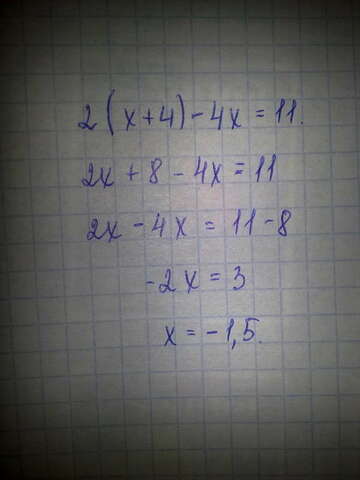 2(x+4)-4x=11.
2x+8-4x=11
2x-4x=11-8
-2x=3
x=-1,5.